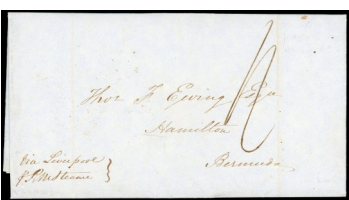 Thos F. Ewing Esqr
Hamilton
Bermuda
via Liverpool